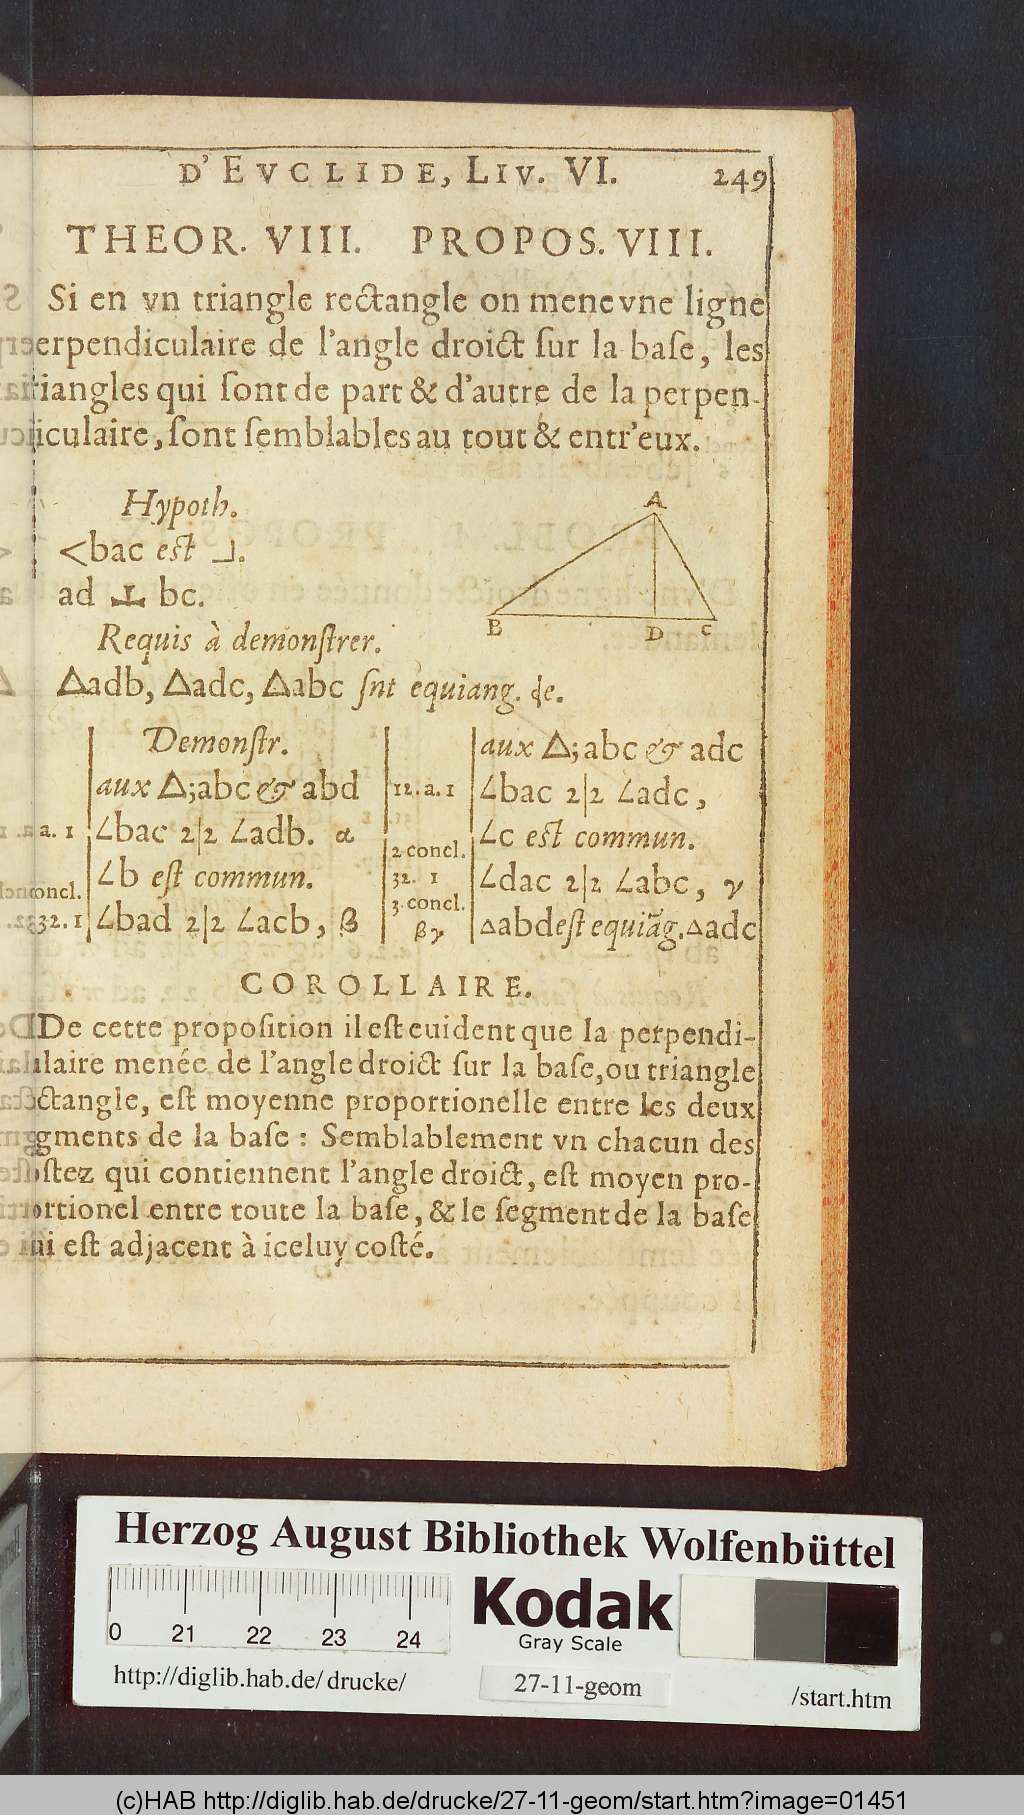 D' EVCLIDE, LIV. VI. 249
THEOR. VIII. PROPOS. VIII.
Si en vn triangle rectangle on mene vne ligne
erpendiculaire de l'angle droict ſur la baſe, les
riangles qui ſont de part & d'autre de la perpen-
iculaire, ſont ſemblables au tout & entr'eux.
A
B D C
Hypoth.
<bac eſt ⅃.
ad ⊥ bc.
Requis à demonſtrer.
△adb, △adc, △abc ſnt equiang. &c.
Demonſtr.
aux △; abc & abd
a. 1 ∠bac 2|2 ∠adb. α
∠b eſt commun.
concl.
32. 1 ∠bad 2|2 ∠acb, β
aux △; abc & adc
12. a. 1 ∠bac 2|2 ∠adc,
∠c eſt commun.
2 concl.
32. 1 ∠dac 2|2 ∠abc, γ
3. concl.
βγ △abd eſt equiãg. △adc
COROLLAIRE.
De cette propoſition il eſt euident que la perpendi-
laire menée de l'angle droict ſur la baſe, ou triangle
ctangle, eſt moyenne proportionelle entre les deux
gments de la baſe : Semblablement vn chacun des
ſtez qui contiennent l'angle droict, eſt moyen pro-
ortionel entre toute la baſe, & le ſegment de la baſe
ui eſt adjacent à iceluy coſté.
Herzog August Bibliothek Wolfenbüttel
0 21 22 23 24
Kodak
Gray Scale
http://diglib.hab.de/drucke/ 27-11-geom /start.htm
(c)HAB http://diglib.hab.de/drucke/27-11-geom/start.htm?image=01451